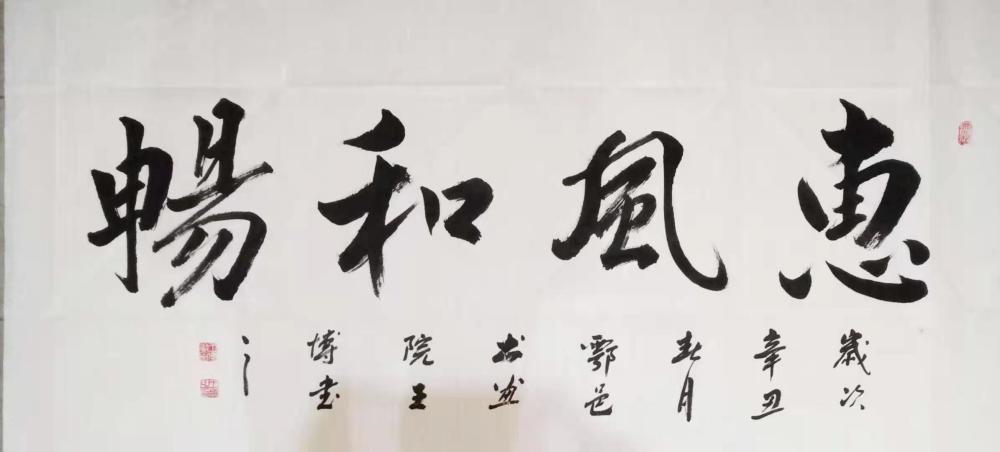 惠風和暢
歲次
辛丑
春月
鄠邑
书画
院王
博书